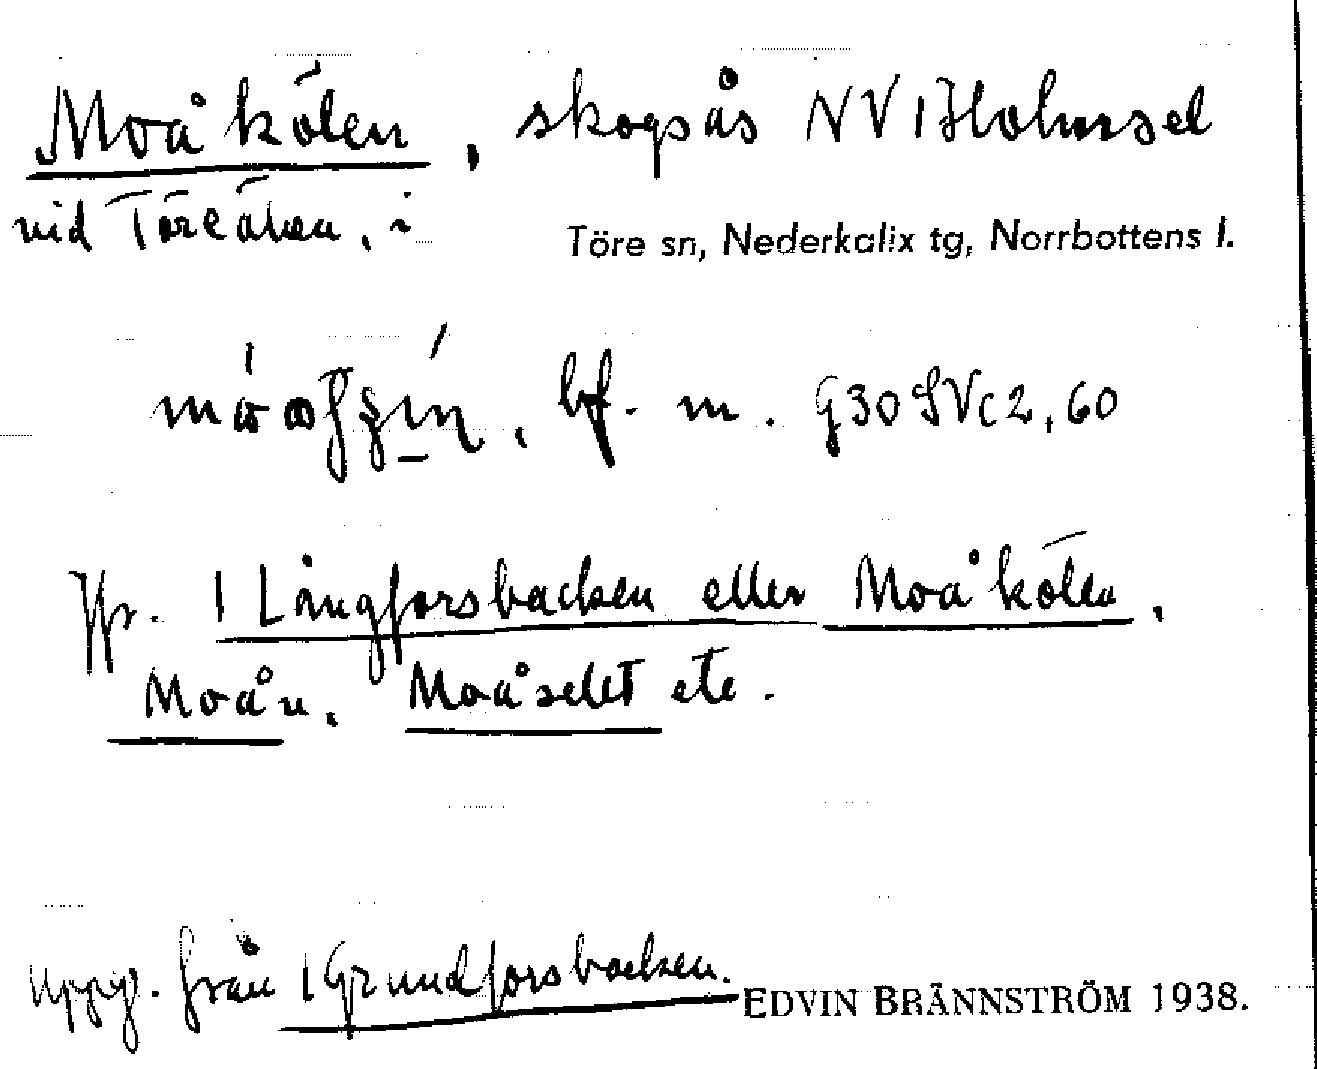 Moåkölen, skogsås NV 1 Holmsel
vid Töreälven, i
Töre sn, Nederkalix tg, Norrbottens l.
bf. m. G30SVc2,60
Jfr. 1 Långforsbacken eller Moåkölen,
Moån, Moåselet etc.
uppg. från 1 Grundforsbacken.
EDVIN BRÄNNSTRÖM 1938.